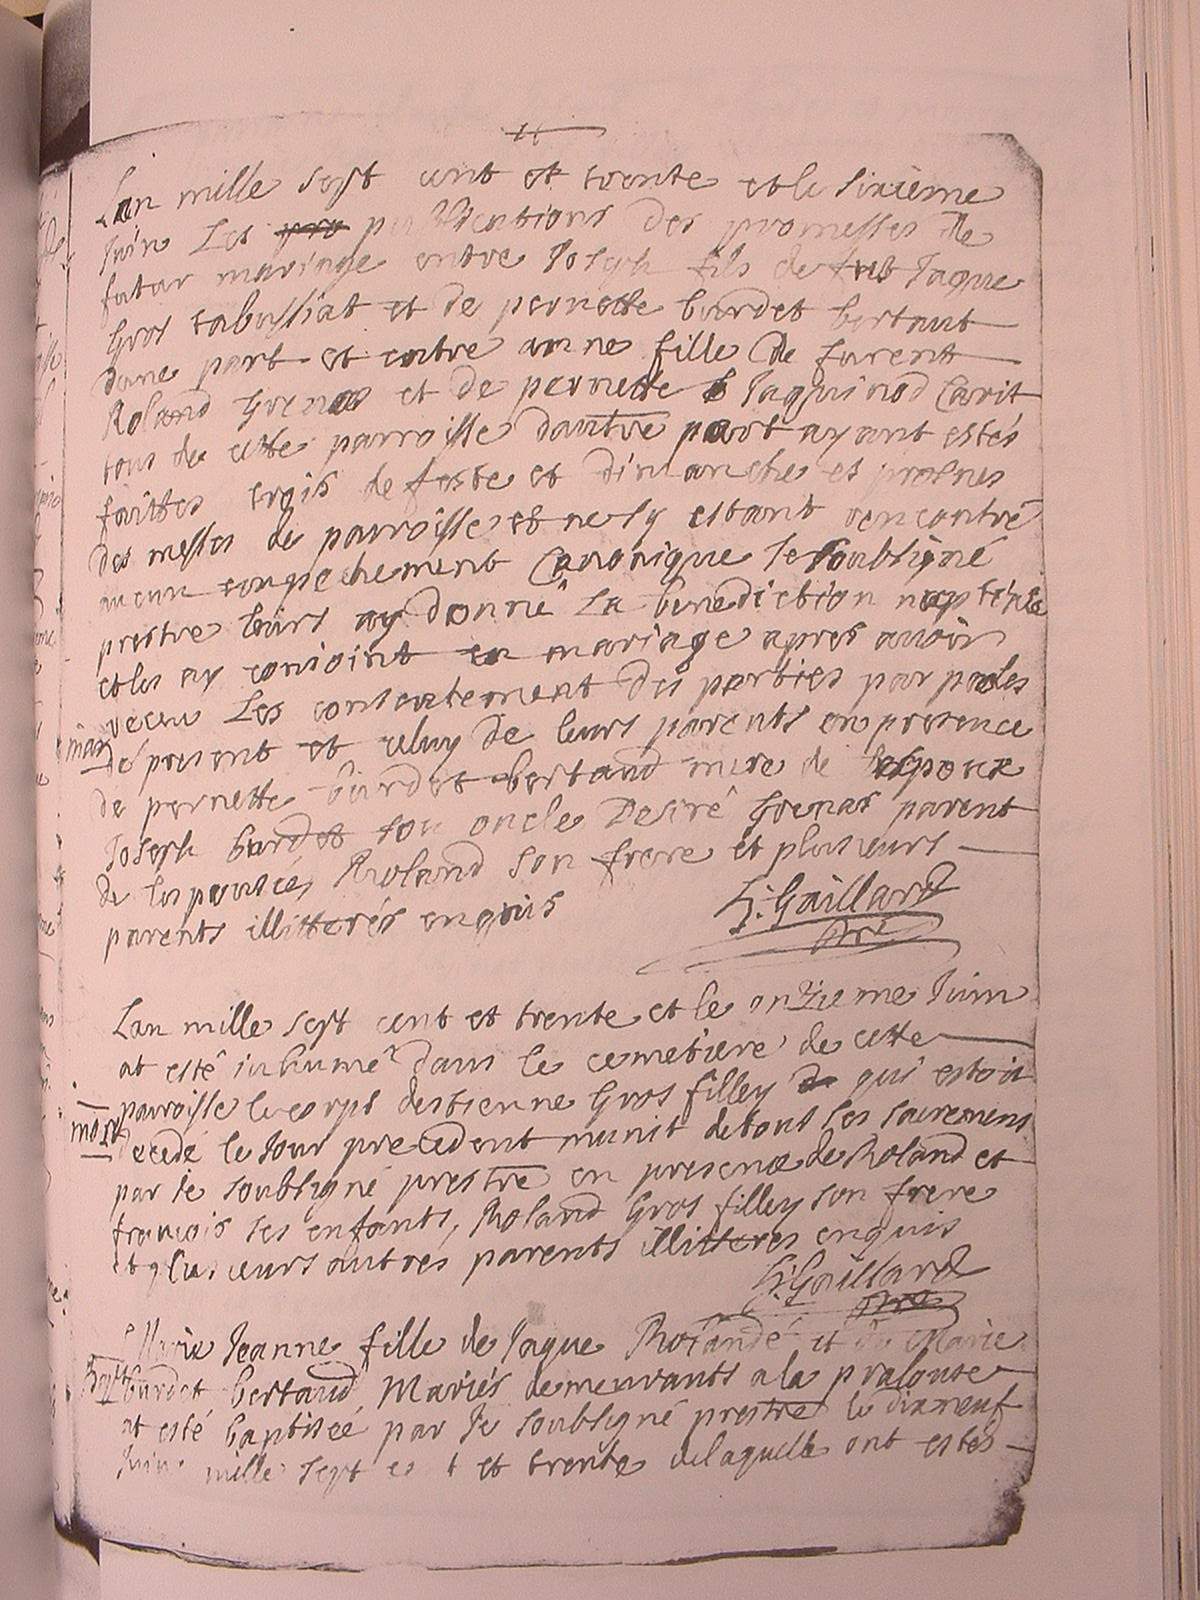 Lan mille sept cent et trente et le sixieme
Juin Les publications des promesses de
futur mariage entre Joseph fils de Jaque
Gros tabussiat et de pernette burdet bertaut
dune part et entre anne fille de furent
Roland Grenas et de pernette Jaquinod Carit
tous de cette parroisse dautre part ayant estés
faittes trois de feste et dimanche es prosnes
des messes de parroisse et ne sy estant rencontré
aucun empechement Canonique Je soubsigné
prestre leurs ay donné La benediction nuptiale
et les ay conioint en mariage apres avoir
receu Les consentement des parties par paroles
mar
de present et celuy de leurs parents en presence
de pernette burdet bertand mere de lespoux
Joseph burdet son oncle Desiré Grenas parent
de lespousée, Roland son frere et plusieurs
parents illitterés enquis
G: Gaillard
ptre
Lan mille sept cent et trente et le onzieme Juin
at esté inhumé dans le cemetiere de cette
parroisse le corps destienne Gros filley qui estoit
mort
decedé le Jour precedent munit de tous les sacremens
par Je soubsigné prestre en presence de Roland et
francois ses enfants, Roland Gros filley son frere
et plusieurs autres parents illitteres enquis
G: Gaillard
ptre
Marie Jeanne fille de Jaque Rolandé et de Marie
Bapt
burdet bertand Mariés demeurants a la pralouse
at esté baptisée par Je soubsigné prestre le dixneuf
Juin mille sept cent et trente delaquelle ont estés